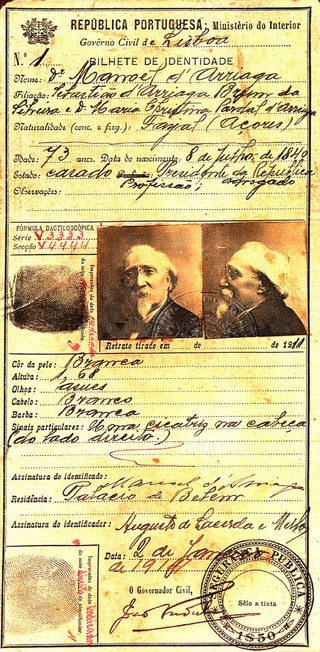 REPÚBLICA PORTUGUESA: Ministério do Interior
Govêrno Civil de Lisboa
N.º 1 BILHETE DE IDENTIDADE
Nome: Dr. Manoel d'Arriaga
Filiação: Sebastião d'Arriaga Brum da
Silveira e D. Maria Cristina Pardal d'Arriaga
Naturalidade (conc. e freg.): Fayal (Açores)
Idade: 73 anos. Data do nascimento: 8 de Julho de 1840
Estado: casado Profissão: Presidente da República
Profissão: advogado
Observações:
FÓRMULA DACTILOSCÓPICA
Série V3333
Secção V4444
Impressões do dedo
da mão
Retrato tirado em de de 1911
Côr da pele: Branca
Altura: 1,68
Olhos:
Cabelo: Branco
Barba: Branca
Sinais particulares: Uma cicatriz na cabeça
(do lado direito.)
Assinatura do identificado: Manuel d'Arriaga
Residência: Palacio de Belem
Assinatura do identificador: Augusto de Lacerda e Mello
Impressões do dedo
da mão
Data: 2 de
de 19
O Governador Civil,
SEGURANÇA PUBLICA
Sêlo a tinta
1850